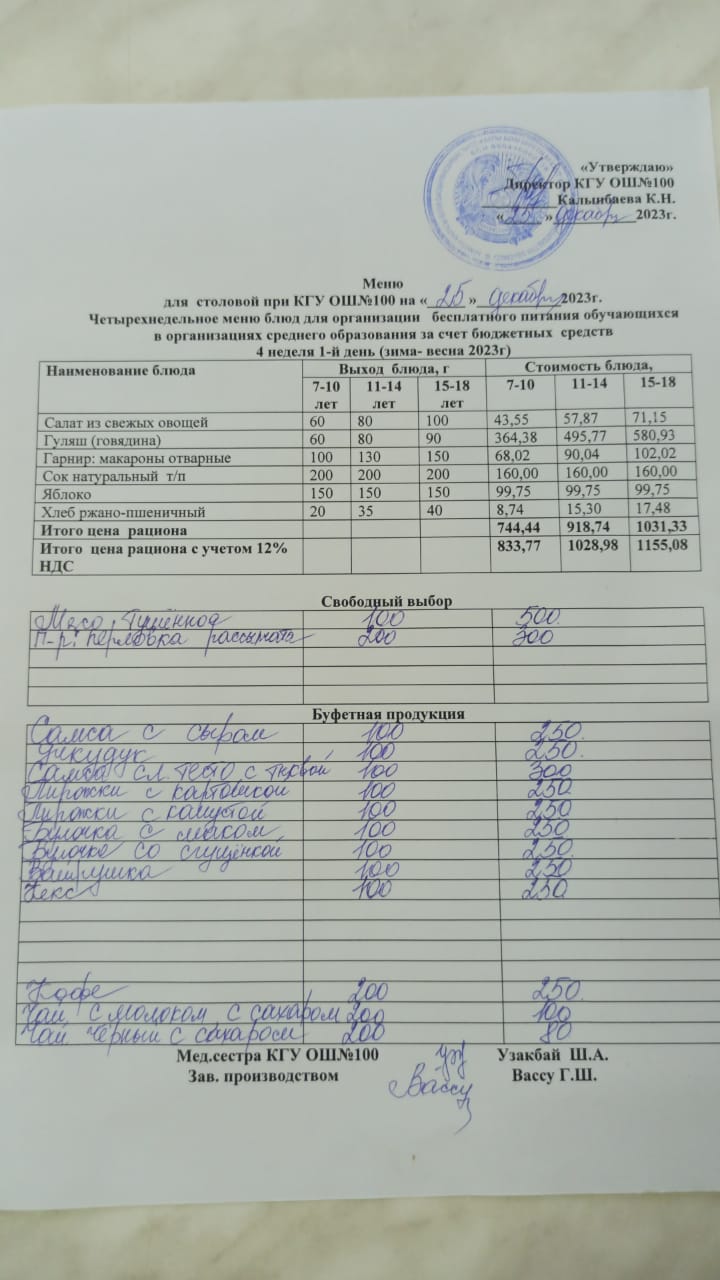 «Утверждаю»
Директор КГУ ОШ№100
Калынбаева К.Н.
«25» декабрь 2023г.
Меню
для столовой при КГУ ОШ№100 на «25» декабрь 2023г.
Четырехнедельное меню блюд для организации бесплатного питания обучающихся
в организациях среднего образования за счет бюджетных средств
4 неделя 1-й день (зима- весна 2023г)
Наименование блюда Выход блюда, г Стоимость блюда,
7-10 лет 11-14 лет 15-18 лет 7-10 11-14 15-18
Салат из свежых овощей 60 80 100 43,55 57,87 71,15
Гуляш (говядина) 60 80 90 364,38 495,77 580,93
Гарнир: макароны отварные 100 130 150 68,02 90,04 102,02
Сок натуральный т/п 200 200 200 160,00 160,00 160,00
Яблоко 150 150 150 99,75 99,75 99,75
Хлеб ржано-пшеничный 20 35 40 8,74 15,30 17,48
Итого цена рациона 744,44 918,74 1031,33
Итого цена рациона с учетом 12% НДС 833,77 1028,98 1155,08
Свободный выбор
Мясо тушённое 100 500
Г-р: перловка рассыпчата 200 300
Буфетная продукция
Самса с сыром 100 250
Учкудук 100 250
Самса сл. тесто с тыквой 100 300
Пирожки с картошкой 100 250
Пирожки с капустой 100 250
Булочка с маком 100 250
Булочка со сгущёнкой 100 250
Ватрушка 100 250
Кекс 100 250
Кофе 200 250
Чай с молоком с сахаром 200 100
Чай чёрный с сахаром 200 80
Мед.сестра КГУ ОШ№100 Узакбай Ш.А.
Зав. производством Вассу Вассу Г.Ш.